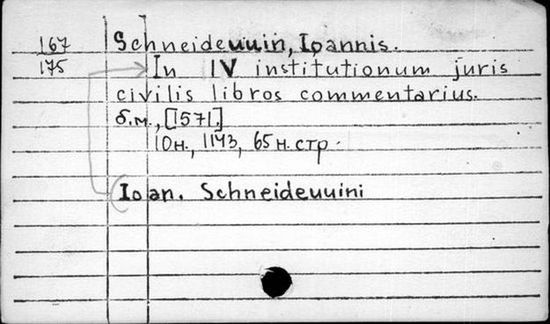 167 Schneideuuin, Ioannis.
175 In IV institutionum juris
civilis libros commentarius.
б.м., [1571.]
10н., 1143, 65 н. стр.
Ioan. Schneideuuini